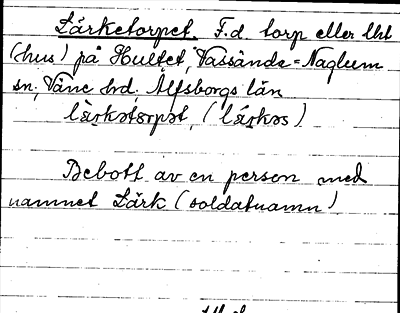 Lärketorpet. F.d. torp eller lht
(hus) på Hultet, Vassända-Naglum
sn, Väne hd. Älfsborgs län
lärkətɔrpət, (lárkəs)
Bebott av en person med
namnet Lärk (soldatnamn)